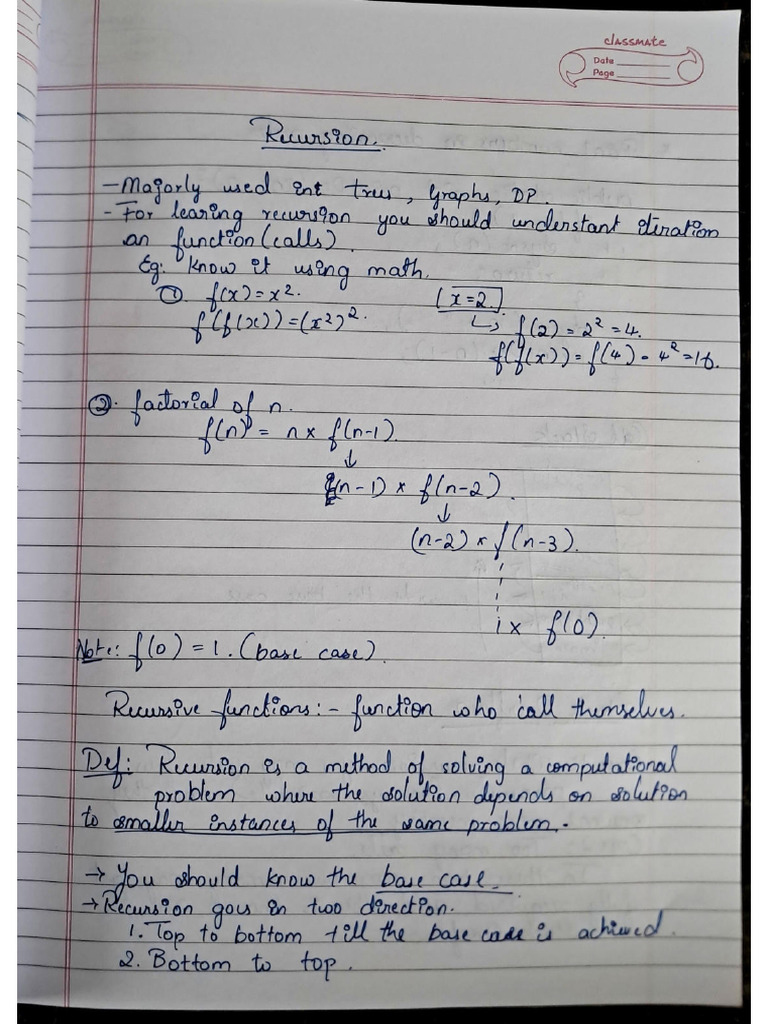 classmate
Date
Page
Recursion.
- Majorly used int trees, Graphs, DP.
- For learing recursion you should understant iteration
an function (calls)
Eg: Know it using math.
① f(x) = x². (x=2)
f(f(x)) = (x²)². ↳ f(2) = 2² = 4.
f(f(x)) = f(4) = 4² = 16.
②. factorial of n.
f(n) = n × f(n-1)
↓
(n-1) × f(n-2).
↓
(n-2) × f(n-3).
1 × f(0).
Note: f(0) = 1. (base case)
Recursive functions:- function who call themselves.
Def: Recursion is a method of solving a computational
problem where the solution depends on solution
to smaller instances of the same problem.
→ You should know the base case.
→ Recursion goes in two direction.
1. Top to bottom till the base case is achieved.
2. Bottom to top.